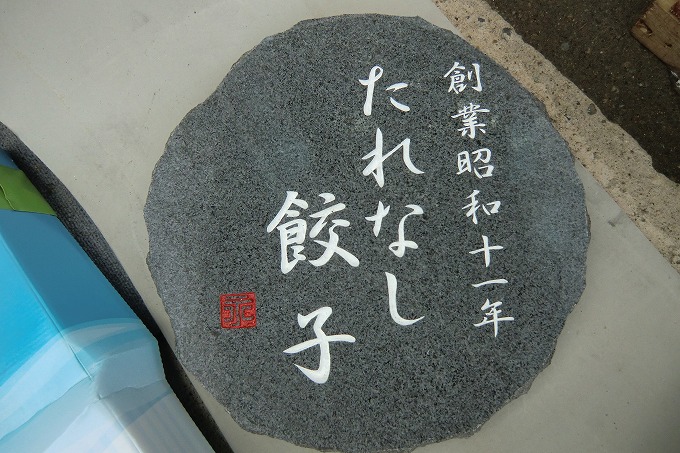 創業昭和十一年
たれなし
餃子